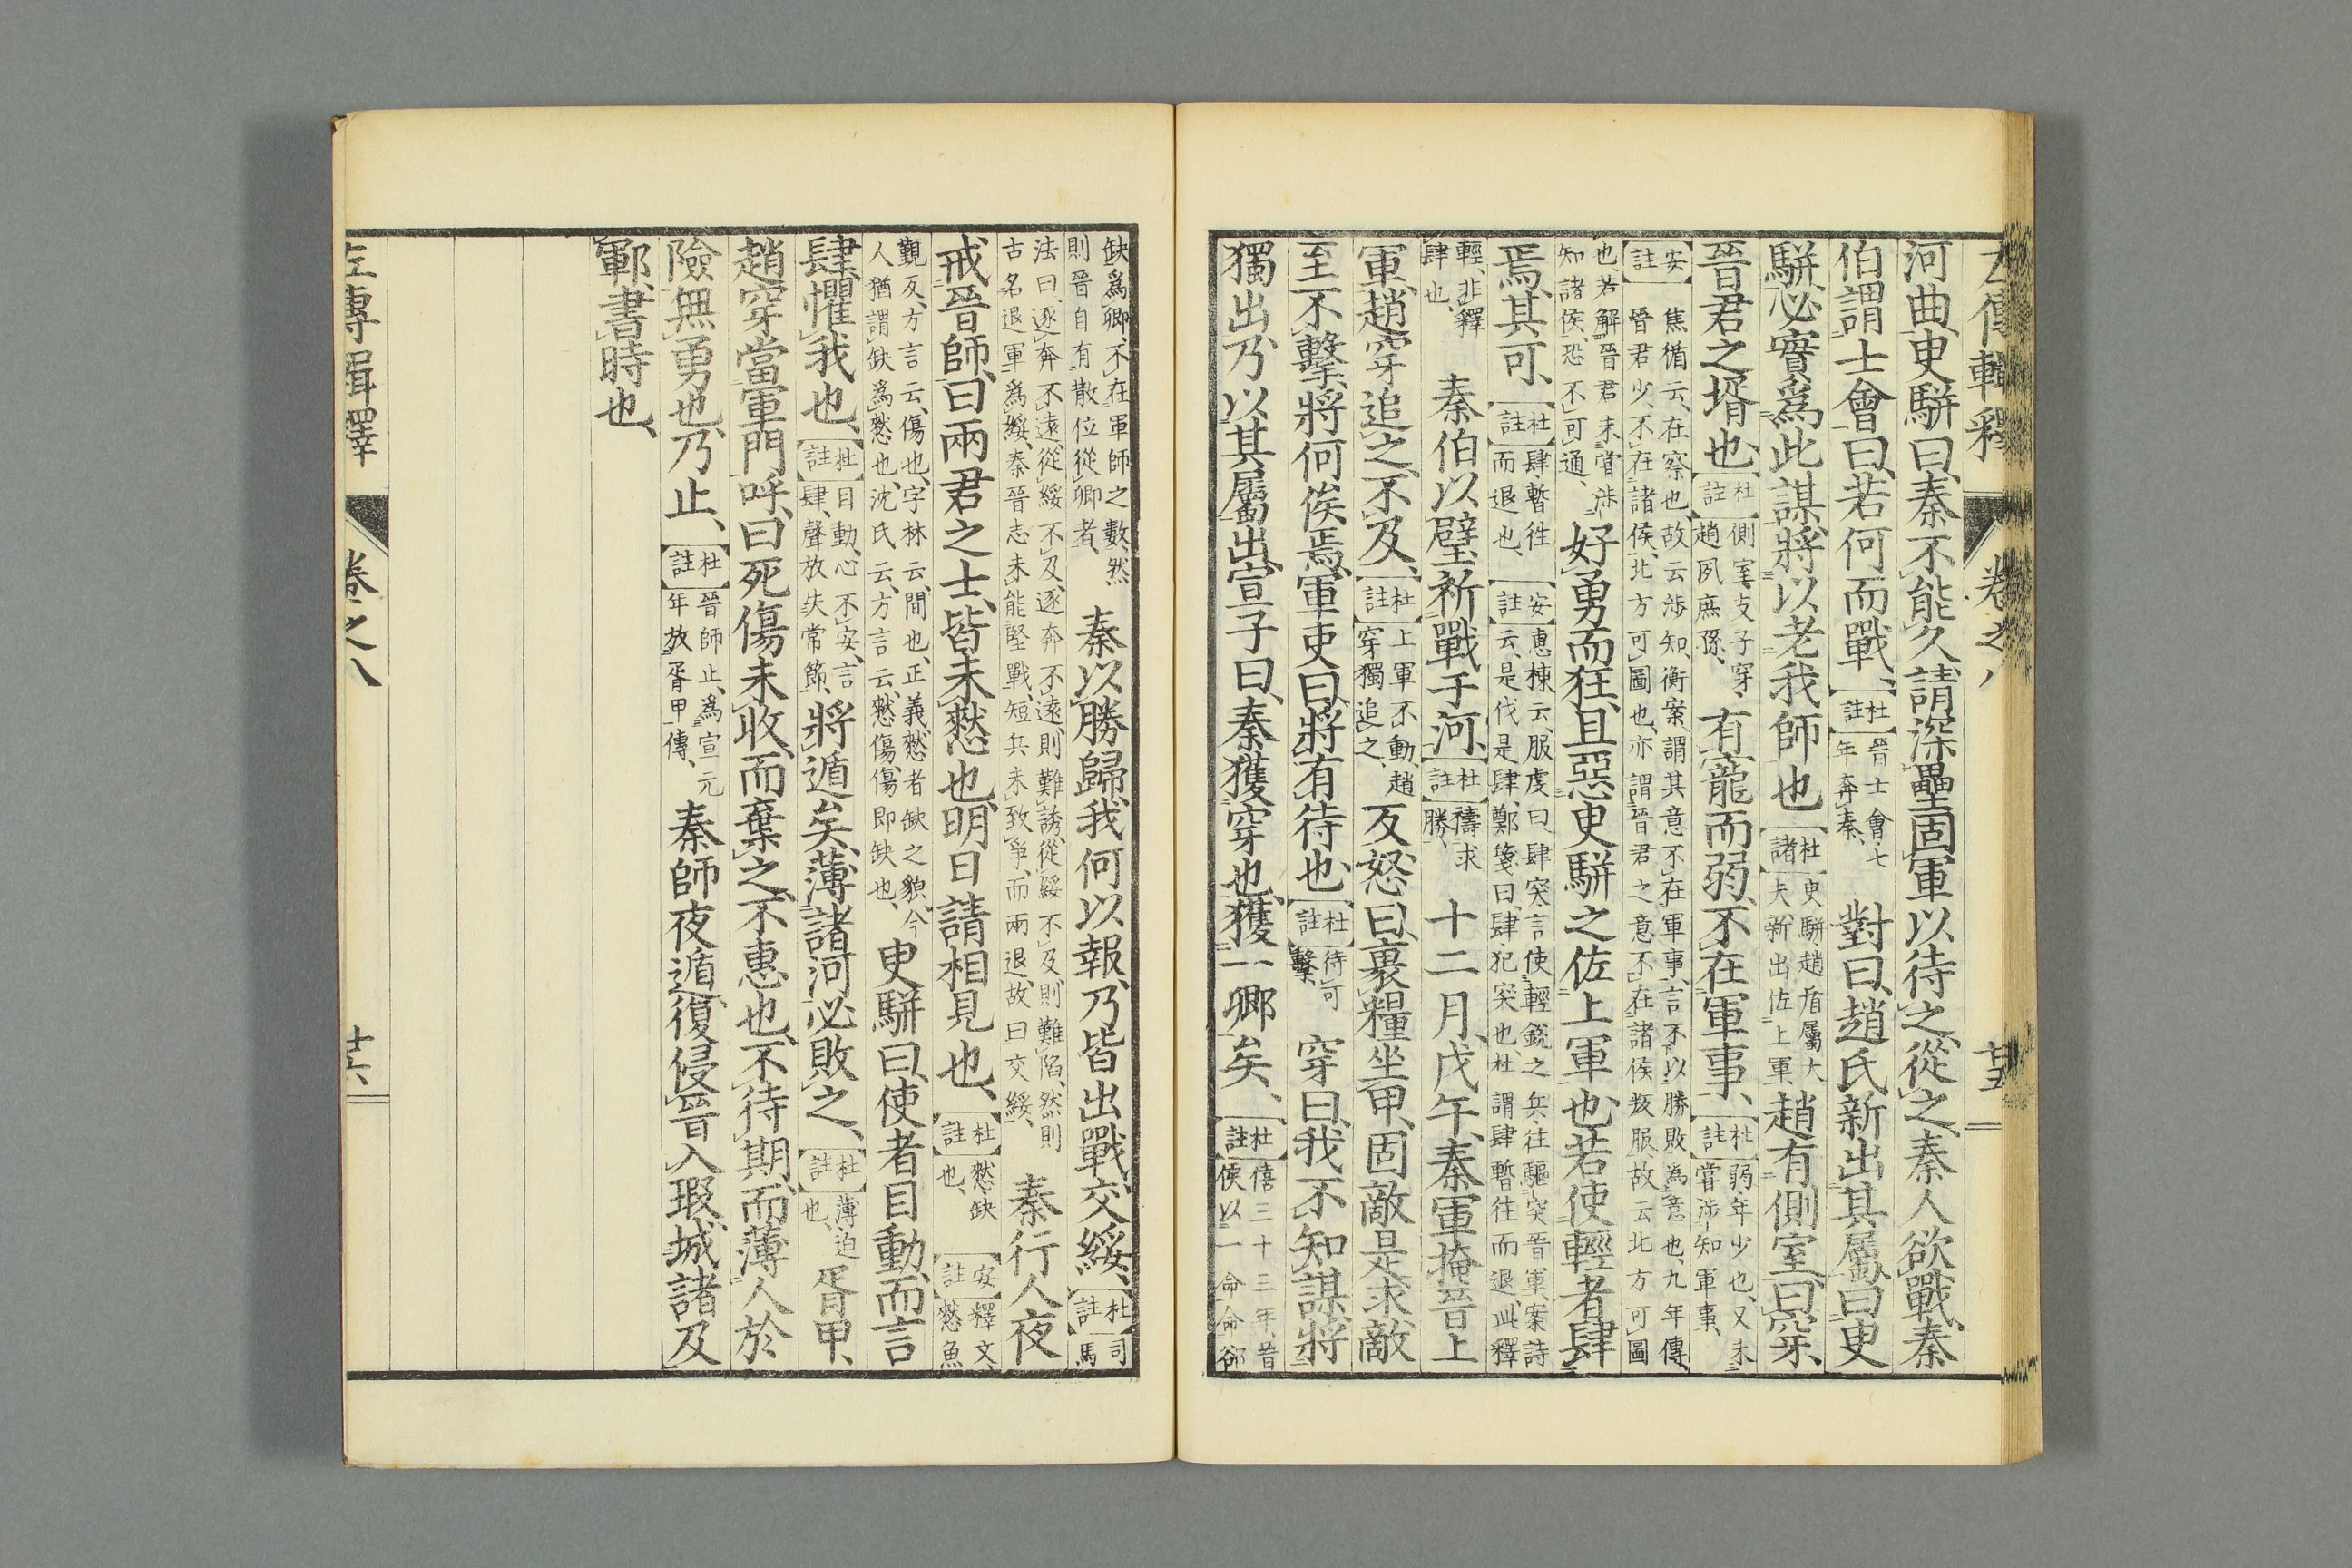 左傳輯釋 卷之八 廿五
河曲、臾駢曰、秦不能久、請深壘固軍以待之、從之、秦人欲戰、秦
伯謂士會曰、若何而戰、【杜註】晉士會七年奔秦、對曰、趙氏新出其屬曰臾
駢、必實爲此謀、將以老我師也【杜諸】臾駢趙盾屬大夫、新出佐上軍、趙有側室、曰穿、
晉君之壻也、【杜註】側室支子穿、趙夙庶孫、有寵而弱、不在軍事、【杜註】弱年少也、又未嘗涉知軍事、
【安註】焦循云、在察也、故云涉知、衡案謂其意不在軍事、言不以勝敗為意也、九年傳、晉君少、不在諸侯、北方可圖也、亦謂晉君之意不在諸侯叛服、故云北方可圖
也、若解晉君未嘗涉知諸侯、恐不可通、好勇而狂、且惡臾駢之佐上軍也、若使輕者肆
焉、其可、【杜註】肆暫徃而退也、【安註】惠棟云、服虔曰、肆突、言使輕鋭之兵、往驅突晉軍、案詩云、是伐是肆、鄭箋曰、肆犯突也、杜謂肆暫往而退、此釋
輕、非釋肆也、秦伯以璧祈戰于河、【杜註】禱求勝、十二月、戊午、秦軍掩晉上
軍、趙穿追之、不及、【杜註】上軍不動、趙穿獨追之、反怒曰、裹糧坐甲、固敵是求、敵
至不擊、將何俟焉、軍吏曰、將有待也、【杜註】待可擊、穿曰、我不知謀、將
獨出、乃以其屬出、宣子曰、秦獲穿也、獲一卿矣、【杜註】僖三十三年、晉侯以一命命郤
缺爲卿、不在軍師之數、然則晉自有散位從卿者、秦以勝歸、我何以報、乃皆出戰、交綏、【杜註】司馬
法曰、逐奔不遠、從綏不及、逐奔不遠、則難誘、從綏不及、則難陷、然則古名退軍爲綏、秦晉志未能堅戰、短兵未致爭、而兩退、故曰交綏、秦行人夜
戒晉師、曰、兩君之士、皆未憖也、明日請相見也、【杜註】憖缺也、【安註】釋文、憖魚
覲反、方言云、傷也、字林云、間也、正義憖者缺之貌、今人猶謂缺爲憖也、沈氏云、方言云、憖傷、傷即缺也、臾駢曰、使者目動、而言
肆、懼我也、【杜註】目動、心不安、言肆、聲放失常節、將遁矣、薄諸河必敗之、【杜註】薄迫也、胥甲、
趙穿當軍門、呼曰、死傷未收、而棄之、不惠也、不待期、而薄人於
險、無勇也、乃止、【杜註】晉師止、爲宣元年放胥甲傳、秦師夜遁、復侵晉入瑕、城諸及
鄆、書時也、
左傳輯釋 卷之八 廿六